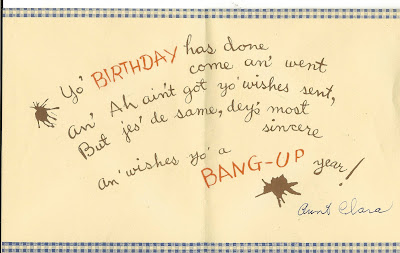 Yo' BIRTHDAY has done
come an' went
an' Ah ain't got yo' wishes sent,
But jes' de same, dey's most
sincere
an' wishes yo' a
BANG-UP year!
Aunt Clara